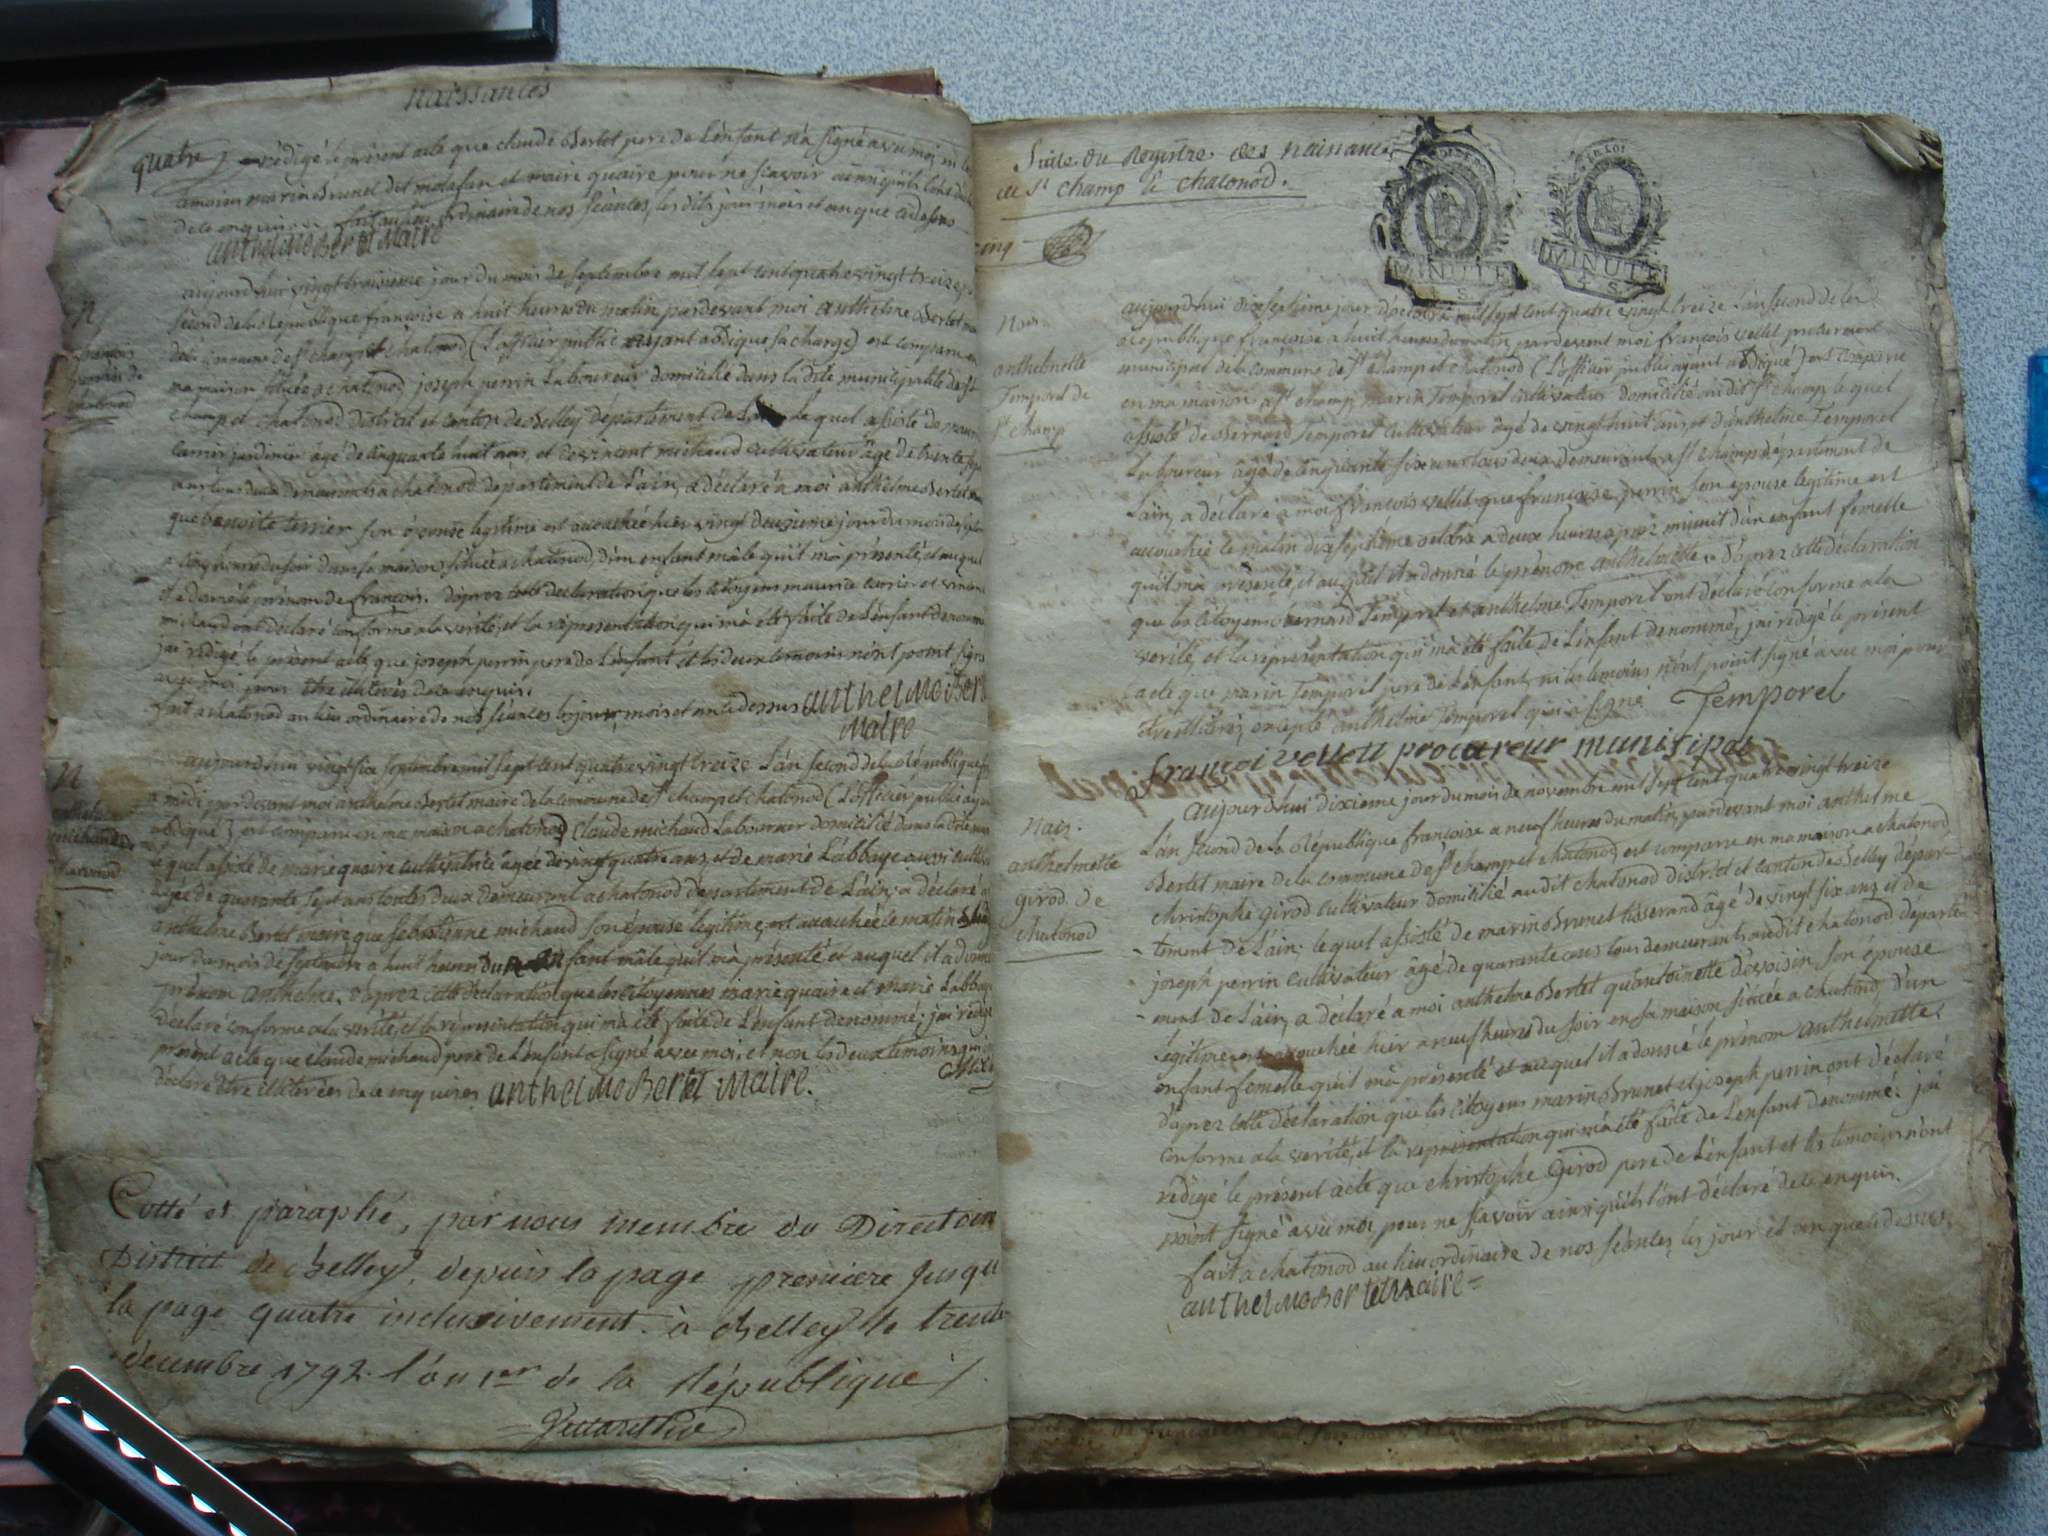 naissances
quatre rédigé le présent acte que claude Bertet pere de L'enfant n'a signé avec moi, ni les
temoins marin Brunet dit molafan et marie quaire pour ne sçavoir ainsi qu'ils l'ont
de ce enquis. fait au lieu ordinaire de nos séances, les dits jour mois et an que cidessus
anthelme Bertet Maire
aujourd'hui vingt troisieme jour du mois de septembre mil sept cent quatre vingt treize
second de la République françoise a huit heures du matin pardevant moi anthelme Bertet
de la commune de st champ et chatonod (L'officier public ayant abdiqué sa charge) est comparu en
ma maison située a chatonod joseph perrin Laboureur domicilié dans la dite municipalité de st
champ et chatonod district et canton de Belley département de Lain Le quel assisté de maurice
carrier jardinier âgé de cinquante huit ans, et de vincent michaud cultivateur âgé de trente
ans tous deux demeurants a chatonod département de L'ain, a déclaré a moi anthelme Bertet
que benoite terrier son épouse legitime est accouchée hier vingt deuxieme jour du mois de
a cinq heures du soir dans sa maison située a chatonod, d'un enfant mâle qu'il m'a présenté, et auquel
il a donné le prénom de françois. D'aprez cette déclaration que les citoyens maurice carrier et vincent
michaud ont déclaré conforme a la verité, et la représentation qui m'a été faite de L'enfant denommé
j'ai rédigé le présent acte que joseph perrin pere de L'enfant et les deux temoins n'ont point signé
avec moi pour être illiterés de ce enquis.
fait a chatonod au lieu ordinaire de nos séances les jour, mois et an cidessus anthelme Bert
Maire
N
françois
perrin de
chatonod
aujourd'hui vingt six septembre mil sept cent quatre vingt treize L'an second de la République
a midi pardevant moi anthelme Bertet maire de la commune de st champ et chatonod (L'officier public ayant
abdiqué) est comparu en ma maison a chatonod Claude michaud Laboureur domicilié dans la dite
le quel assisté de marie quaire cultivatrice agée de vingt quatre ans et de marie Labbaye aussi
agée de quarante sept ans toutes deux demeurant a chatonod département de L'ain, a déclaré a
anthelme Bertet maire que sebastienne michaud son épouse legitime, est accouchée le matin
jour du mois de septembre a huit heures d'un enfant mâle qu'il m'a présenté et auquel il a donné
prénom anthelme. D'aprez cette déclaration que les citoyennes marie quaire et marie Labbaye
déclaré conforme a la verité, et la réprésentation qui m'a été faite de L'enfant denommé; j'ai rédigé
présent acte que claude michaud pere de L'enfant a signé avec moi, et non les deux temoins qui
déclaré être illiterées de ce enquises anthelme Bertet Maire.
N
anthelme
michaud de
chatonod
Cotté et paraphé, par nous membre du Directoire
District de Belley, depuis la page premiere jusqu
la page quatre inclusivement. à Belley le trente
decembre 1792. l'an 1er de la République
Suite du Registre des naissances
de St champ & chatonod.
cinq
EN LOI
MINUTE
S
MINUTE
S
Nais.
anthelmette
Temporel de
st champ
aujourd'hui dixseptieme jour d'octobre mil sept cent quatre vingt treize L'an second de la
République françoise a huit heures du matin, pardevant moi françois vellet procureur
municipal de la commune de st champ et chatonod (L'officier public ayant abdiqué) est comparu
en ma maison a st champ marin Temporel cultivateur domicilié au dit st champ le quel
assisté de Bernard Temporel cultivateur âgé de vingt huit ans, et d'anthelme Temporel
Laboureur âgé de cinquante six ans tous deux demeurant a st champ département de
Lain, a déclaré a moi françois vellet que françoise perrin son épouse legitime est
accouchée le matin dixseptieme octobre a deux heures aprez minuit d'un enfant femelle
qu'il m'a présenté, et auquel il a donné le prénom anthelmette. D'aprez cette déclaration
que les citoyens bernard Temporel et anthelme Temporel ont déclaré conforme a la
verité, et la réprésentation qui m'a été faite de L'enfant denommé, j'ai rédigé le présent
acte que marin Temporel pere de L'enfant, ni les temoins n'ont point signé avec moi pour
être illiterés, excepté anthelme Temporel qui a signé Temporel
françoi vellett procureur munisipal
Nais.
anthelmette
girod de
chatonod
aujourd'hui dixieme jour du mois de novembre mil sept cent quatre vingt treize
L'an second de la République françoise a neuf heures du matin, pardevant moi anthelme
Bertet maire de la commune de st champ et chatonod, est comparu en ma maison a chatonod
christophe girod cultivateur domicilié au dit chatonod district et canton de Belley dépar-
-tement de L'ain; le quel assisté de marin Brunet tisserand âgé de vingt six ans, et de
joseph perrin cultivateur âgé de quarante ans tous deux demeurants au dit chatonod départe-
-ment de L'ain, a déclaré a moi anthelme Bertet qu'antoinette Devoisin son épouse
légitime est accouchée hier a neuf heures du soir en sa maison située a chatonod d'un
enfant femelle qu'il m'a présenté et auquel il a donné le prénom anthelmette.
D'aprez cette déclaration que les citoyens marin Brunet et joseph perrin ont déclaré
conforme a la verité, et la représentation qui m'a été faite de L'enfant denommé; j'ai
rédigé le présent acte que christophe Girod pere de L'enfant et les temoins n'ont
point signé avec moi, pour ne sçavoir ainsi qu'ils l'ont déclaré de ce enquis.
fait a chatonod au lieu ordinaire de nos séances, les jour et an que cidessus.
anthelme Bertet Maire